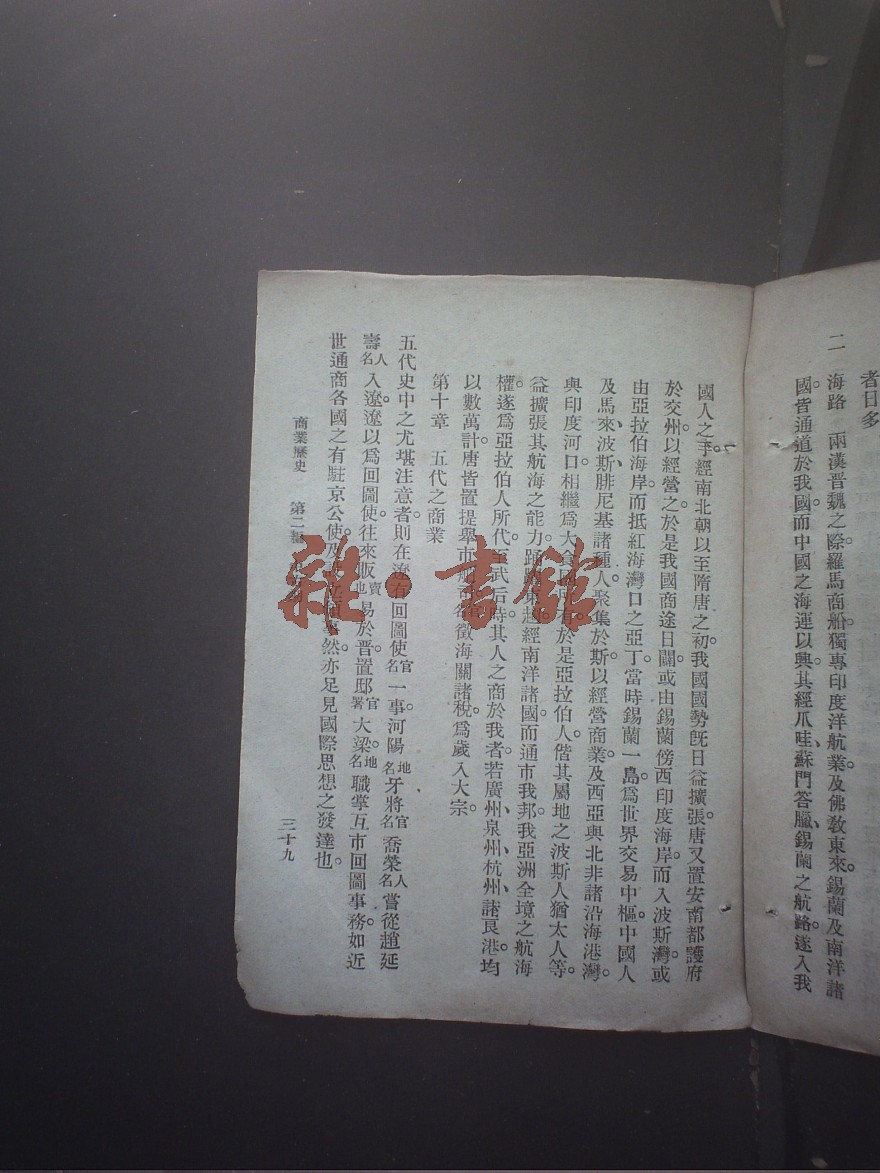 者日多
二　海路　兩漢晉魏之際。羅馬商船。獨專印度洋航業。及佛教東來。錫蘭及南洋諸
國。皆通道於我國。而中國之海運以興。其經爪哇、蘇門答臘、錫蘭之航路。遂入我
國人之手。經南北朝以至隋唐之初。我國國勢旣日益擴張。唐又置安南都護府
於交州。以經營之。於是我國商途日闢。或由錫蘭傍西印度海岸。而入波斯灣。或
由亞拉伯海岸。而抵紅海灣口之亞丁。當時錫蘭一島。爲世界交易中樞。中國人
及馬來、波斯、腓尼基諸種人。聚集於斯。以經營商業。及西亞與北非諸沿海港灣。
與印度河口。相繼爲大食國所有。於是亞拉伯人。偕其屬地之波斯人猶太人等。
益擴張其航海之能力。東越。經南洋諸國。而通市我邦。我亞洲全境之航海
權。遂爲亞拉伯人所代。至武后時。其人之商於我者。若廣州、泉州、杭州、諸良港。均
以數萬計。唐皆置提舉市舶司。徵海關諸稅。爲歲入大宗。
第十章　五代之商業
五代史中之尤堪注意者。則在遼有回圖使官名一事。河陽地名牙將官名喬榮人名嘗從趙延
壽人名入遼。遼以爲回圖使。往來販賣也易於晉。置邸官署大梁地名。職掌互市回圖事務。如近
世通商各國之有駐京公使。及領事。然亦足見國際思想之發達也。
商業歷史　第二編
三十九
雜·書館